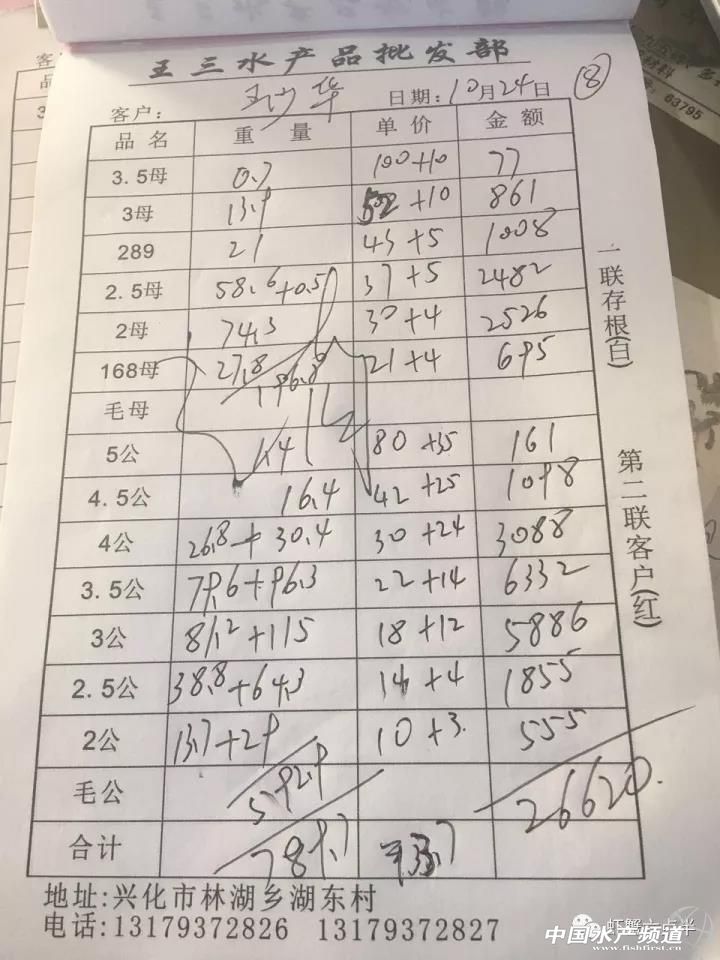 王三水产品批发部
客户: 日期:10月24日 ⑧
品名 重量 单价 金额
3.5母 0.7 100+10 77
3母 13.9 52+10 861
289 21 43+5 1008
2.5母 58.6+0.5 37+5 2482
2母 74.3 30+4 2526
168母 27.8 21+4 695
196.8
毛母
5公 1.4 80+35 161
4.5公 16.4 42+25 1098
4公 26.8+30.4 30+24 3088
3.5公 79.6+96.3 22+14 6332
3公 81.2+115 18+12 5886
2.5公 38.8+64.3 14+4 1855
2公 13.7+29 10+3 555
毛公 592.9 26620
合计 789.7
地址:兴化市林湖乡湖东村
电话:13179372826 13179372827
一联存根(白)
第二联客户(红)
63795
虾蟹六点半
中国水产频道
www.fishfirst.cn